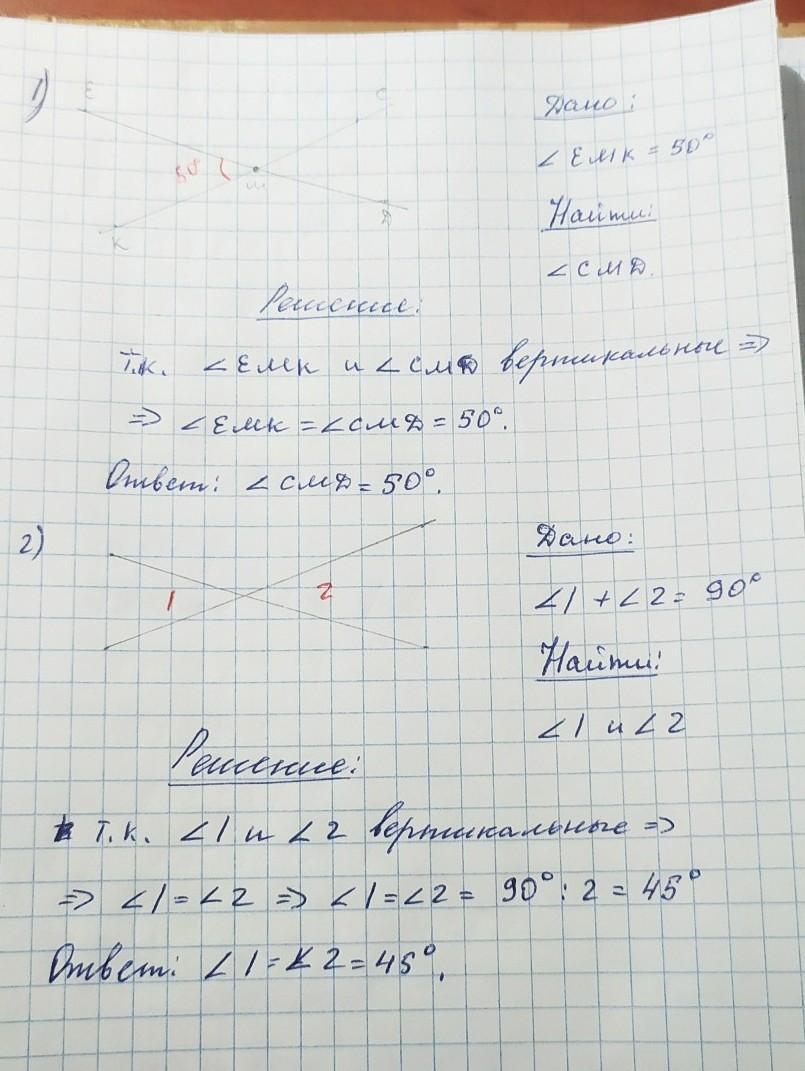 1)
E
C
50°
М
К
Д
Дано:
∠ЕМК = 50°
Найти:
∠СМД.
Решение:
Т.к. ∠ЕМК и ∠СМД вертикальные =>
=> ∠ЕМК = ∠СМД = 50°.
Ответ: ∠СМД = 50°.
2)
1
2
Дано:
∠1 + ∠2 = 90°
Найти:
∠1 и ∠2
Решение:
Т.к. ∠1 и ∠2 вертикальные =>
=> ∠1 = ∠2 => ∠1 = ∠2 = 90° : 2 = 45°
Ответ: ∠1 = ∠2 = 45°.